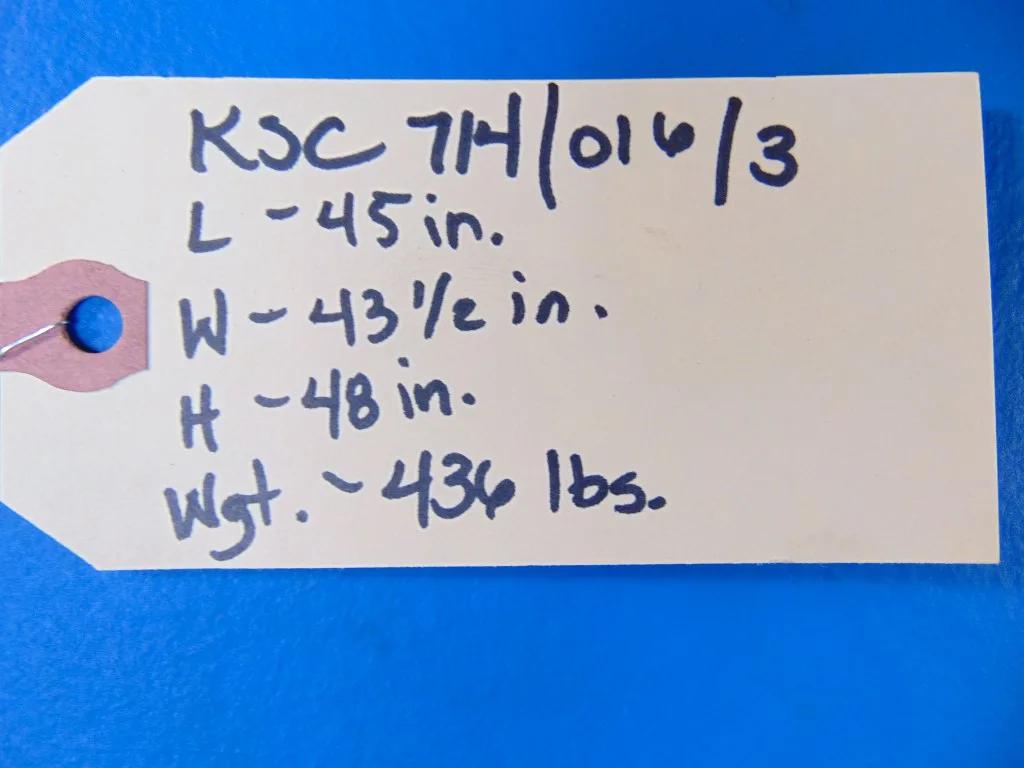 KSC 714/016/3
L - 45 in.
W - 43 1/2 in.
H - 48 in.
Wgt. - 436 lbs.